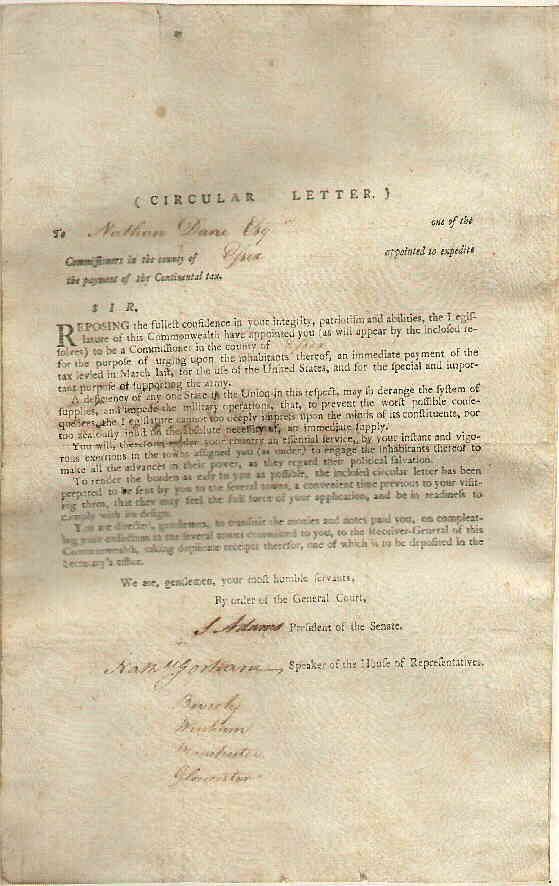 ( CIRCULAR LETTER. )
To Nathan Dane Esqr one of the
Commissioners in the county of Essex appointed to expedite
the payment of the Continental tax.
S I R,
REPOSING the fullest confidence in your integrity, patriotism and abilities, the Legis-
lature of this Commonwealth have appointed you (as will appear by the inclosed re-
solves) to be a Commissioner in the county of Essex
for the purpose of urging upon the inhabitants thereof, an immediate payment of the
tax levied in March last, for the use of the United States, and for the special and impor-
tant purpose of supporting the army.
A deficiency of any one State in the Union in this respect, may so derange the system of
supplies, and impede the military operations, that, to prevent the worst possible conse-
quences, the Legislature cannot too deeply impress upon the minds of its constituents, nor
too zealously insist on the absolute necessity of, an immediate supply.
You will, therefore, render your country an essential service, by your instant and vigo-
rous exertions in the towns assigned you (as under) to engage the inhabitants thereof to
make all the advances in their power, as they regard their political salvation.
To render the burden as easy to you as possible, the inclosed circular letter has been
prepared to be sent by you to the several towns, a convenient time previous to your visit-
ing them, that they may feel the full force of your application, and be in readiness to
comply with its design.
You are directed, gentlemen, to transmit the monies and notes paid you, on compleat-
ing your collection in the several towns committed to you, to the Receiver-General of this
Commonwealth, taking duplicate receipts therefor, one of which is to be deposited in the
Secretary's office.
We are, gentlemen, your most humble servants,
By order of the General Court,
S Adams President of the Senate.
Nathl Gorham Speaker of the House of Representatives.
Beverly
Wenham
Manchester
Gloucester